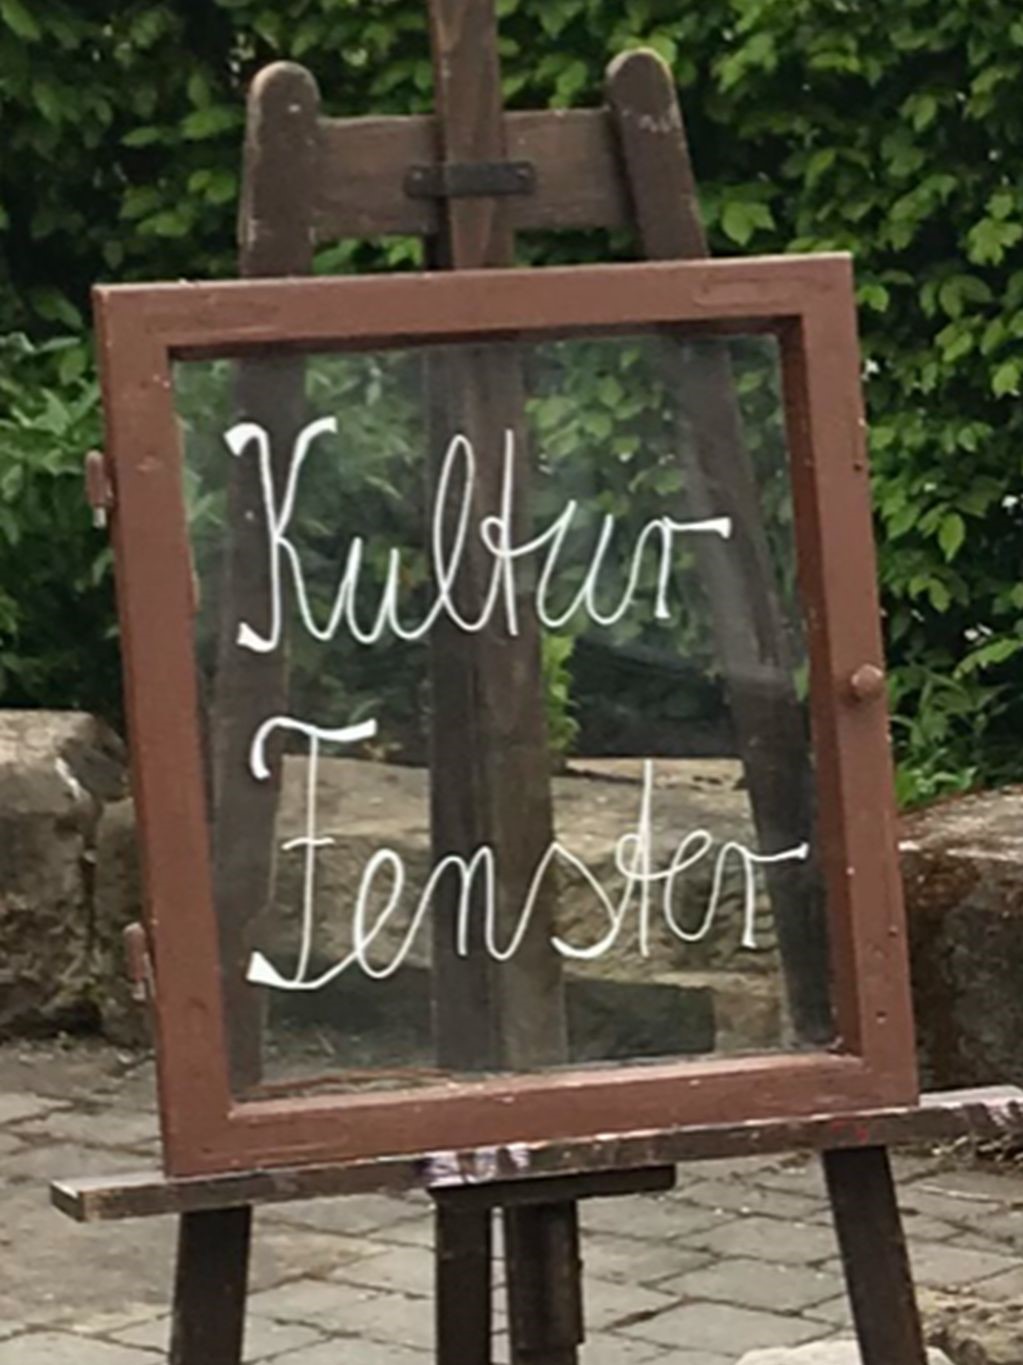 Kultur
Fenster